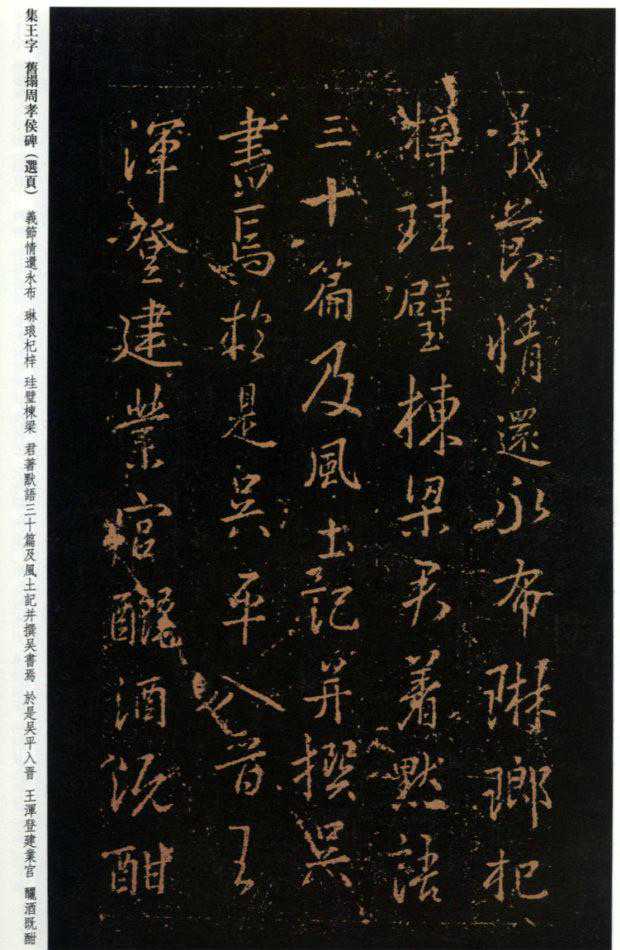 義節情還永布琳瑯杞
梓珪璧棟梁君著默語
三十篇及風土記并撰吳
書焉於是吳平入晋王
渾登建業宫釃酒既酣
集王字 舊搨周孝侯碑（選頁） 義節情還永布 琳琅杞梓 珪璧棟梁 君著默語三十篇及風土記并撰吴書焉 於是吴平入晋 王渾登建業宫 釃酒既酣